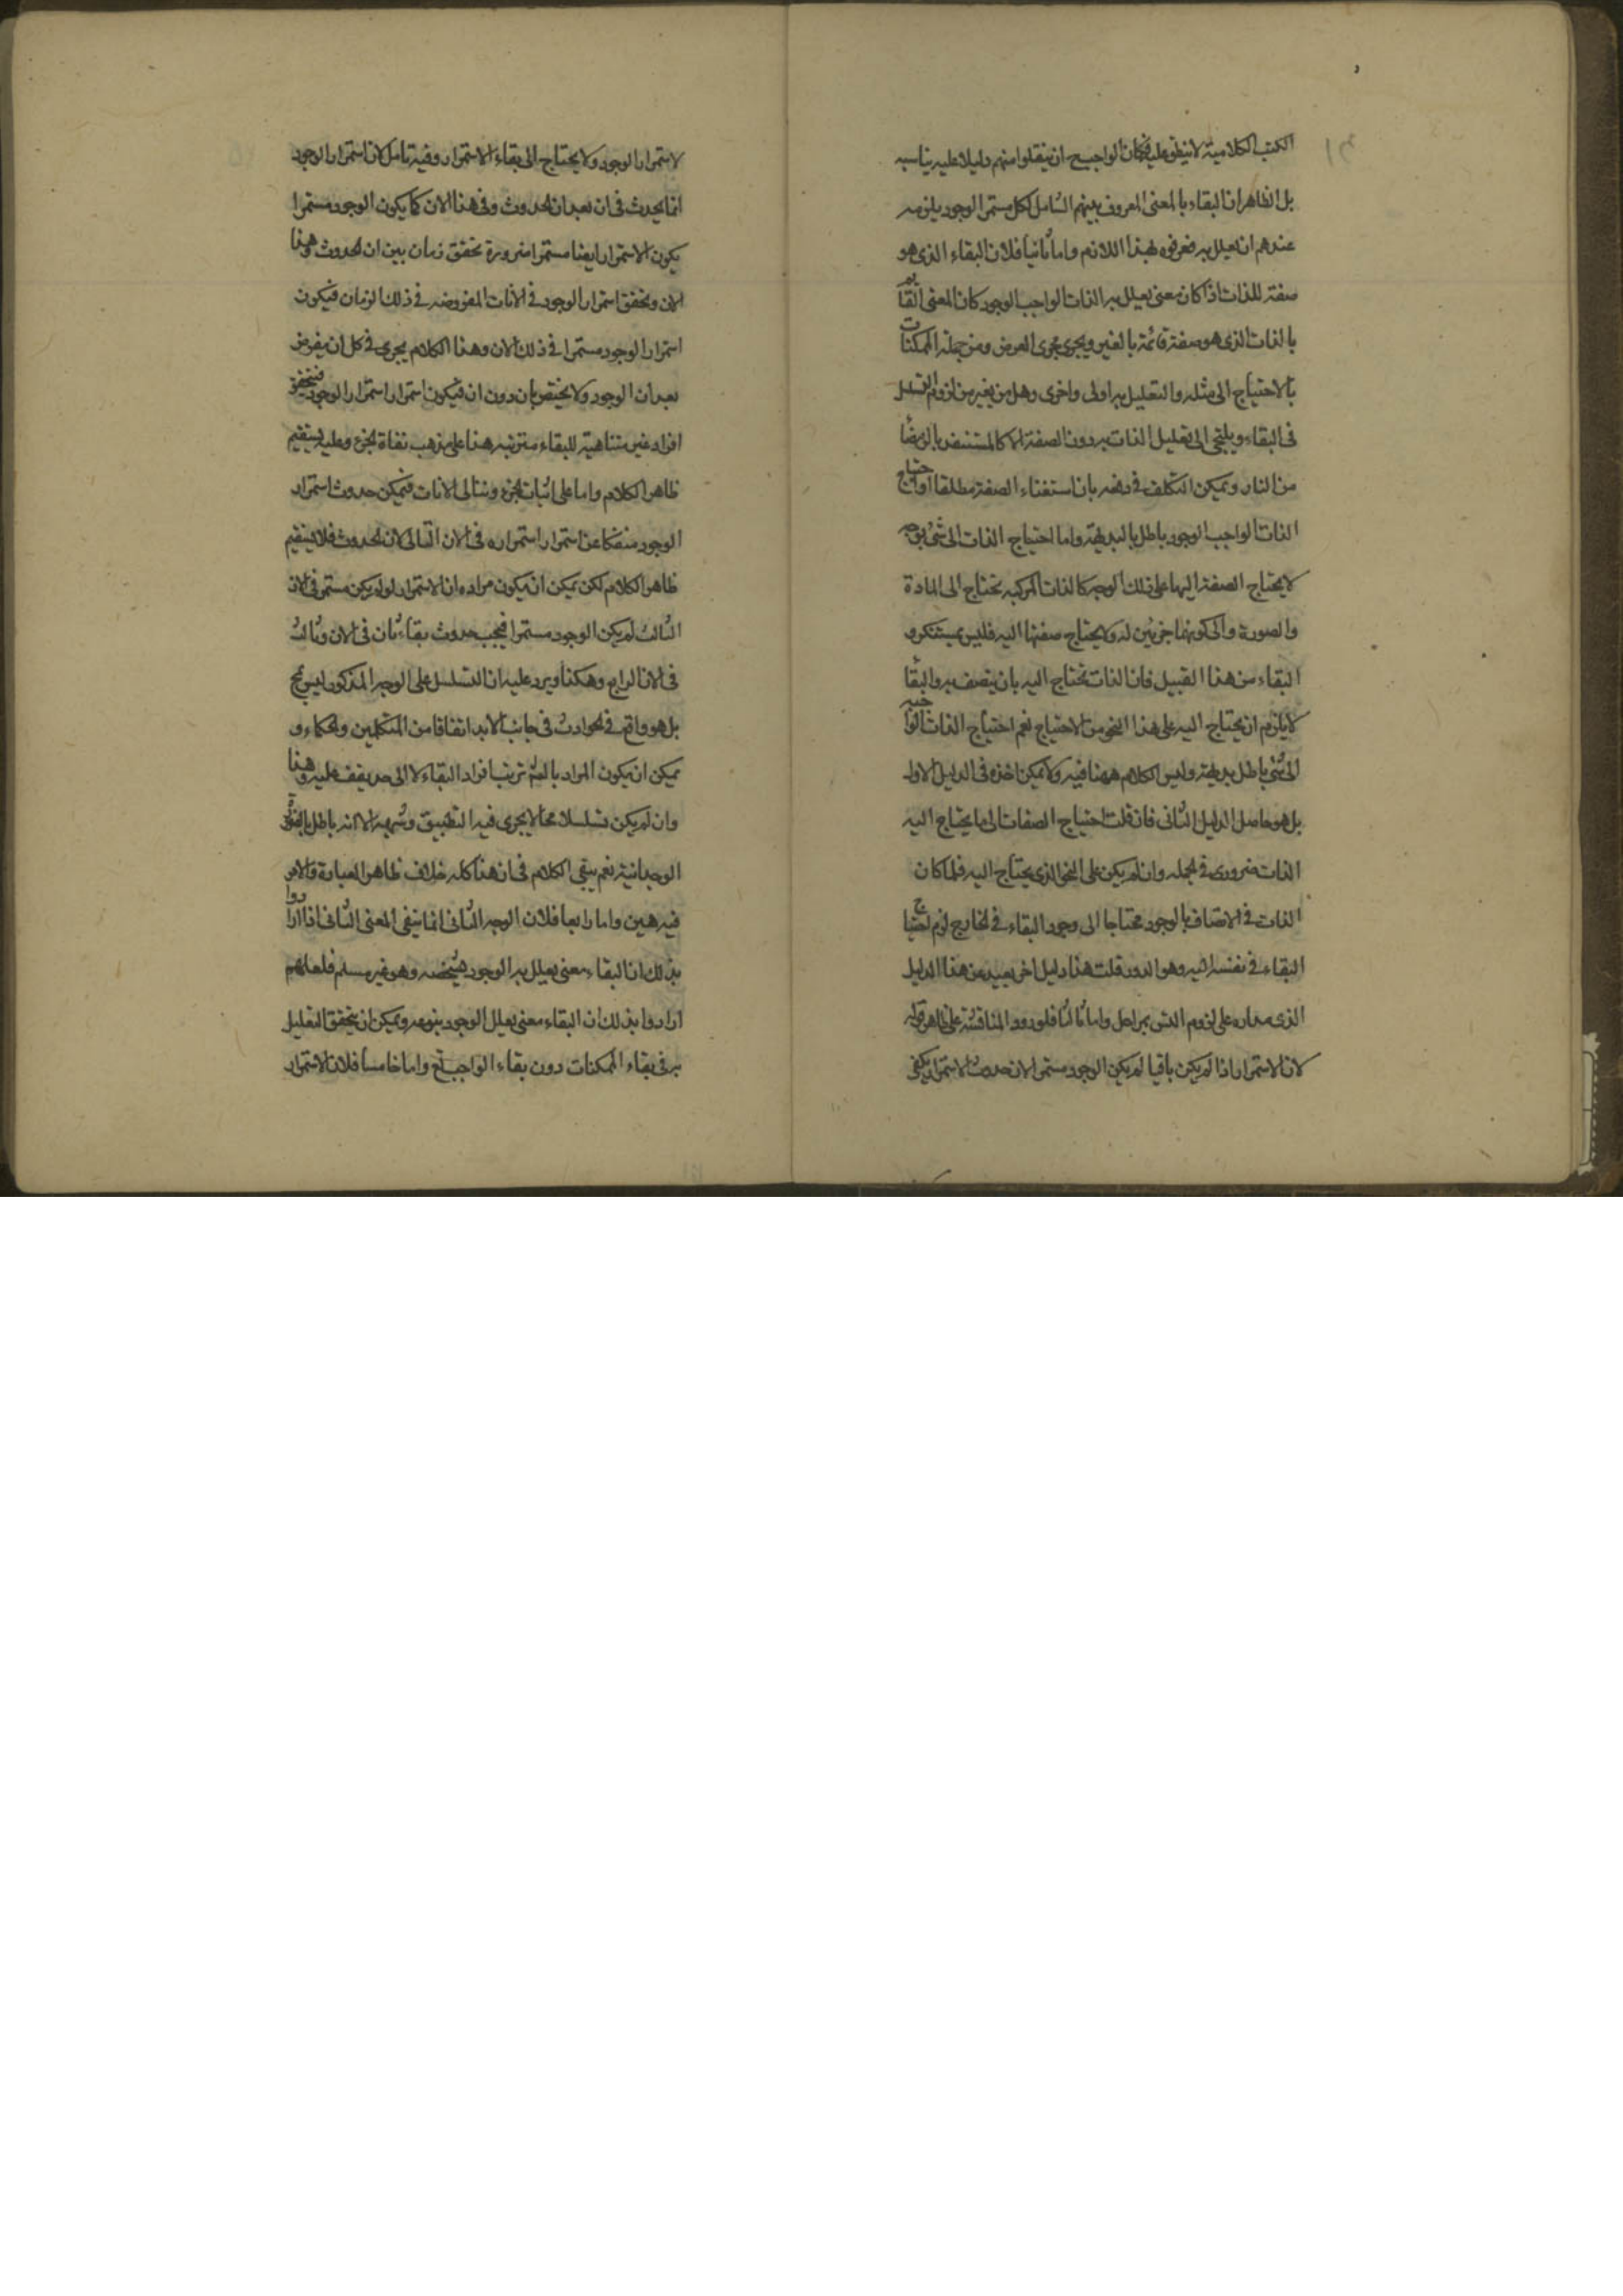 الكتب الكلامية لا ينطق عليه فكان الواجب ان ينقلوا منهم دليلا عليه يناسبه
بل الظاهر ان البقاء بالمعنى المعروف بينهم الشامل لكل مستمر الوجود يلزمه
عندهم ان يعلل به فعرفوه بهذا اللازم واما ثانيا فلان البقاء الذى هو
صفة للذات اذا كان معنى يعلل به الذات الواجب الوجود كان المعنى القائم
بالذات الذى هو صفة قائمة بالغير ويجرى مجرى العرض ومن جملة الممكنات
بالاحتياج الى مثله والتعليل به اولى واخرى وهل من يفر من لزوم التسلسل
فى البقاء ويلتجى الى تعليل الذات به دون الصفة الا كالمستنقذ بالرمضاء
من النار ويمكن التكلف فى دفعه بان استغناء الصفة مطلقا او احتياج
الذات الواجب الوجود باطل بالبديهة واما احتياج الذات الى شئ بوجه
لا يحتاج الصفة اليها على ذلك الوجه كالذات المركبة تحتاج الى المادة
والصورة والى كونهما جزئين له ولا يحتاج صفتها اليه فليس بمستنكر و
البقاء من هذا القبيل فان الذات تحتاج اليه بان يتصف به والبقاء
لا يلزم ان يحتاج اليه على هذا النحو من الاحتياج نعم احتياج الذات الواجبة
الى شئ باطل بديهة وليس الكلام ههنا فيه ولا يمكن اخذه فى الدليل الاول
بل هو حاصل الدليل الثانى فان قلت احتياج الصفات الى ما يحتاج اليه
الذات ضرورى فى الجملة وان لم يكن على النحو الذى يحتاج اليه فلما كان
الذات فى الاتصاف بالوجود محتاجا الى وجود البقاء فى الخارج لزم احتياج
البقاء فى نفسه اليه وهو الدور قلت هذا دليل اخر بعيد عن هذا الدليل
الذى مداره على لزوم التس بمراحل واما ثالثا فلورود المناقشة على ظاهر قوله
لان الاستمرار اذا لم يكن باقيا لم يكن الوجود مستمرا لان حدوث الاستمرار يكفى
لاستمرار الوجود ولا يحتاج الى بقاء الاستمرار وفيه تامل لان استمرار الوجود
انما يحدث فى ان بعد ان الحدوث وفى هذا الان كما يكون الوجود مستمرا
يكون الاستمرار ايضا مستمرا ضرورة تحقق زمان بين ان الحدوث وهذا
الان وتحقق استمرار الوجود فى الانات المفروضه فى ذلك الزمان فيكون
استمرار الوجود مستمرا فى ذلك الان وهذا الكلام يجرى فى كل ان يفرض
بعد ان الوجود ولا يختص بان دون ان فيكون استمرار استمرار الوجود فيتحقق
افراد غير متناهية للبقاء مترتبه هذا على مذهب نفاة الجزء وعليه يستقيم
ظاهر الكلام واما على اثبات الجزء وتتالى الانات فيمكن حدوث استمرار
الوجود منفكا عن استمرار استمراره فى الان التالى لان الحدوث فلا يستقيم
ظاهر الكلام لكن يمكن ان يكون مراده ان الاستمرار لو لم يكن مستمر فى الان
الثالث لم يكن الوجود مستمرا فيجب حدوث بقاء ثان فى الان وثالث
فى الان الرابع وهكذا ويرد عليه ان التسلسل على الوجه المذكور ليس بمح
بل هو واقع فى الحوادث فى جانب الابد اتفاقا من المتكلمين والحكماء و
يمكن ان يكون المراد بالتس ترتب افراد البقاء لا الى حد يقف عليه وهذا
وان لم يكن تسلسلا محالا يجرى فيه التطبيق وشبهه الا انه باطل بالضرورة
الوجدانية نعم يبقى الكلام فى ان هذا كله خلاف ظاهر العبارة والامر
فيه هين واما رابعا فلان الوجه الثانى انما ينفى المعنى الثانى اذا ارادوا
بذلك ان البقاء معنى يعلل به الوجود بشخصه وهو غير مسلم فلعلهم
ارادوا بذلك ان البقاء معنى يعلل الوجود بنوعه ويمكن ان يتحقق التعليل
به فى بقاء الممكنات دون بقاء الواجب تع واما خامسا فلان الاستمرار